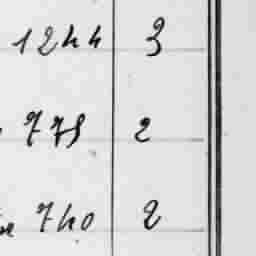 1244 3
775 2
740 2